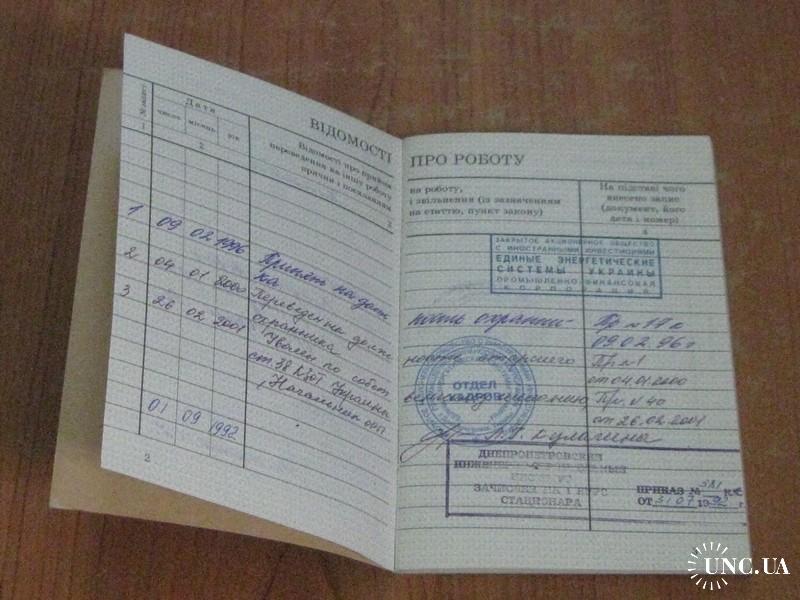 ВІДОМОСТІ
№ запису
Дата
число
місяць
рік
Відомості про прийом
переведення на іншу роботу
причин і посиланням
1
2
3
1 09 02 1996 Принят на долж
2 04 01 2000 Переведен на долж
охранника
3 26 02 2001 Уволен по собст.
ст. 38 КЗоТ Украины
Начальник о/к
01 09 1992
2
ПРО РОБОТУ
на роботу,
і звільнення (із зазначенням
на статтю, пункт закону)
На підставі чого
внесено запис
(документ, його
дата і номер)
4
ЗАКРЫТОЕ АКЦИОНЕРНОЕ ОБЩЕСТВО
С ИНОСТРАННЫМИ ИНВЕСТИЦИЯМИ
ЕДИНЫЕ ЭНЕРГЕТИЧЕСКИЕ
СИСТЕМЫ УКРАИНЫ
ПРОМЫШЛЕННО-ФИНАНСОВАЯ
КОРПОРАЦИЯ
ность охранни- Пр №17к
09.02.96г
ность старшего Пр. №1
от 04.01.2000
Пр. №40
от 26.02.2001
ОТДЕЛ
КАДРОВ
Л.Г. Кулагина
ДНЕПРОПЕТРОВСКИЙ
ЗАЧИСЛЕН НА I КУРС
СТАЦИОНАРА
ПРИКАЗ №
ОТ 31.07 1992 г.
UNC.UA